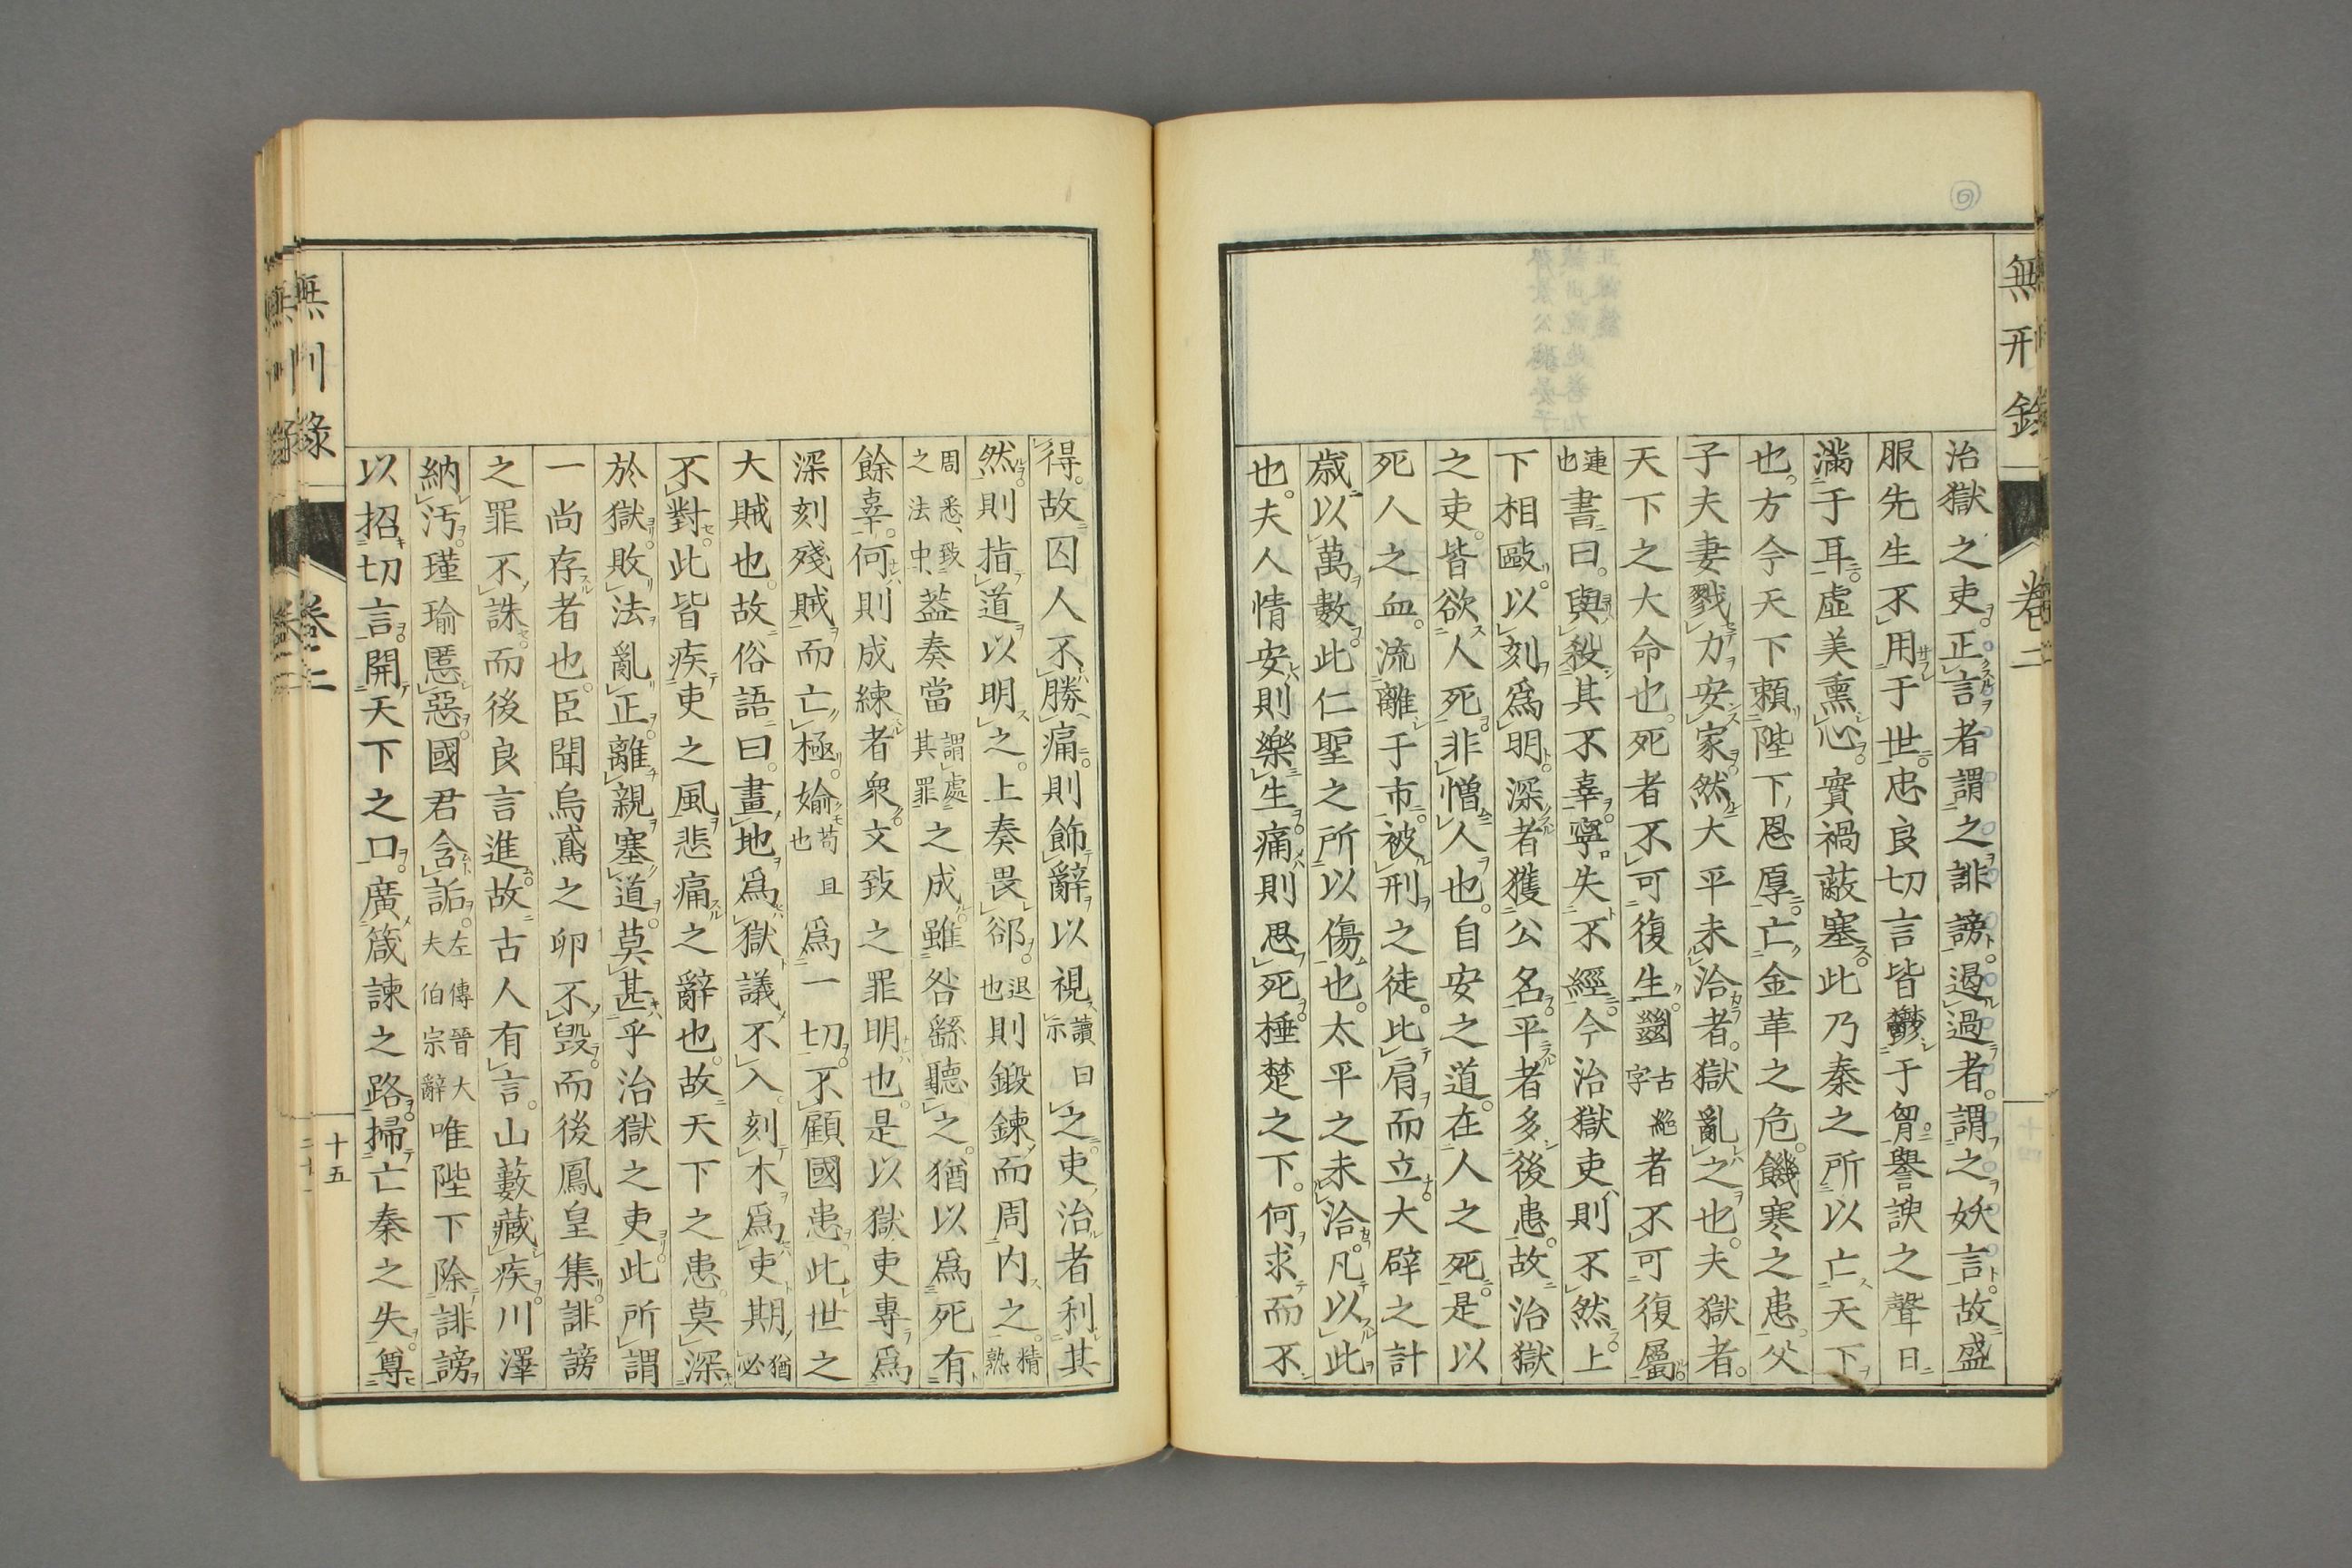 無刑錄
卷二
治獄之吏。正言者謂之誹謗。遏過者。謂之妖言。故盛
服先生不用于世。忠良切言皆鬱于胷。譽諛之聲日
滿于耳。虛美熏心。實禍蔽塞。此乃秦之所以亡天下
也。方今天下賴陛下恩厚。亡金革之危。饑寒之患。父
子夫妻戮力安家。然大平未洽者。獄亂之也。夫獄者。
天下之大命也。死者不可復生。㡭古絕字者不可復屬。
連也書曰。與殺其不辜。寧失不經。今治獄吏則不然。上
下相毆。以刻爲明。深者獲公名。平者多後患。故治獄
之吏。皆欲人死。非憎人也。自安之道。在人之死。是以
死人之血。流離于市。被刑之徒。比肩而立。大辟之計
歲以萬數。此仁聖之所以傷也。太平之未洽。凡以此
也。夫人情安則樂生。痛則思死。棰楚之下。何求而不
得。故囚人不勝痛。則飾辭以視讀曰示之。吏治者利其
然。則指道以明之。上奏畏郤。退也則鍛鍊而周內之。精熟
周悉、致之法中、葢奏當謂處其罪之成。雖咎繇聽之。猶以爲死有
餘辜。何則成練者衆。文致之罪明也。是以獄吏專爲
深刻殘賊而亡極。媮苟且也爲一切。不顧國患。此世之
大賊也。故俗語曰。畫地爲獄議不入。刻木爲吏期猶必
不對。此皆疾吏之風悲痛之辭也。故天下之患。莫深
於獄。敗法亂正。離親塞道。莫甚乎治獄之吏。此所謂
一尚存者也。臣聞烏鳶之卵不毀。而後鳳皇集。誹謗
之罪不誅。而後良言進。故古人有言。山藪藏疾。川澤
納汚。瑾瑜匿惡。國君含詬。左傳晉大夫伯宗辭唯陛下除誹謗
以招切言。開天下之口。廣箴諫之路。掃亡秦之失。尊
無刑錄
卷二
十五